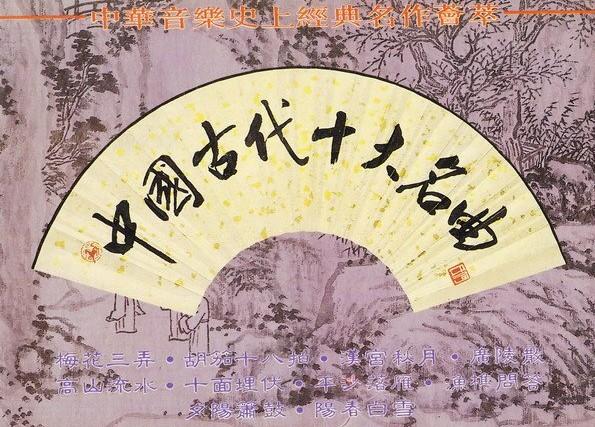 中華音樂史上經典名作薈萃
中國古代十大名曲
梅花三弄•胡笳十八拍•漢宮秋月•廣陵散
高山流水•十面埋伏•平沙落雁•漁樵問答
夕陽簫鼓•陽春白雪